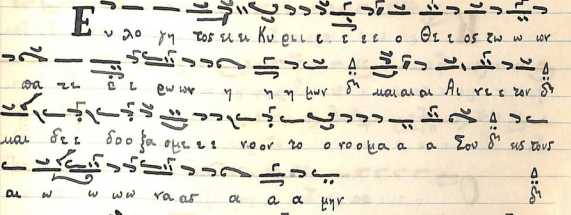 Ευ λο γη τος ει ει Κυ ρι ι ε ε ε ε ο Θε ε ος τω ω ων
πα τε ε ε ρω ων η η η μων δι και αι αι Αι νε ε τον δι
και δε ε δοο ξα ομε ε ε νοον το ο νοομα α α Σου δι εις τους
αι ω ω ω ω να ας α α α μην δι